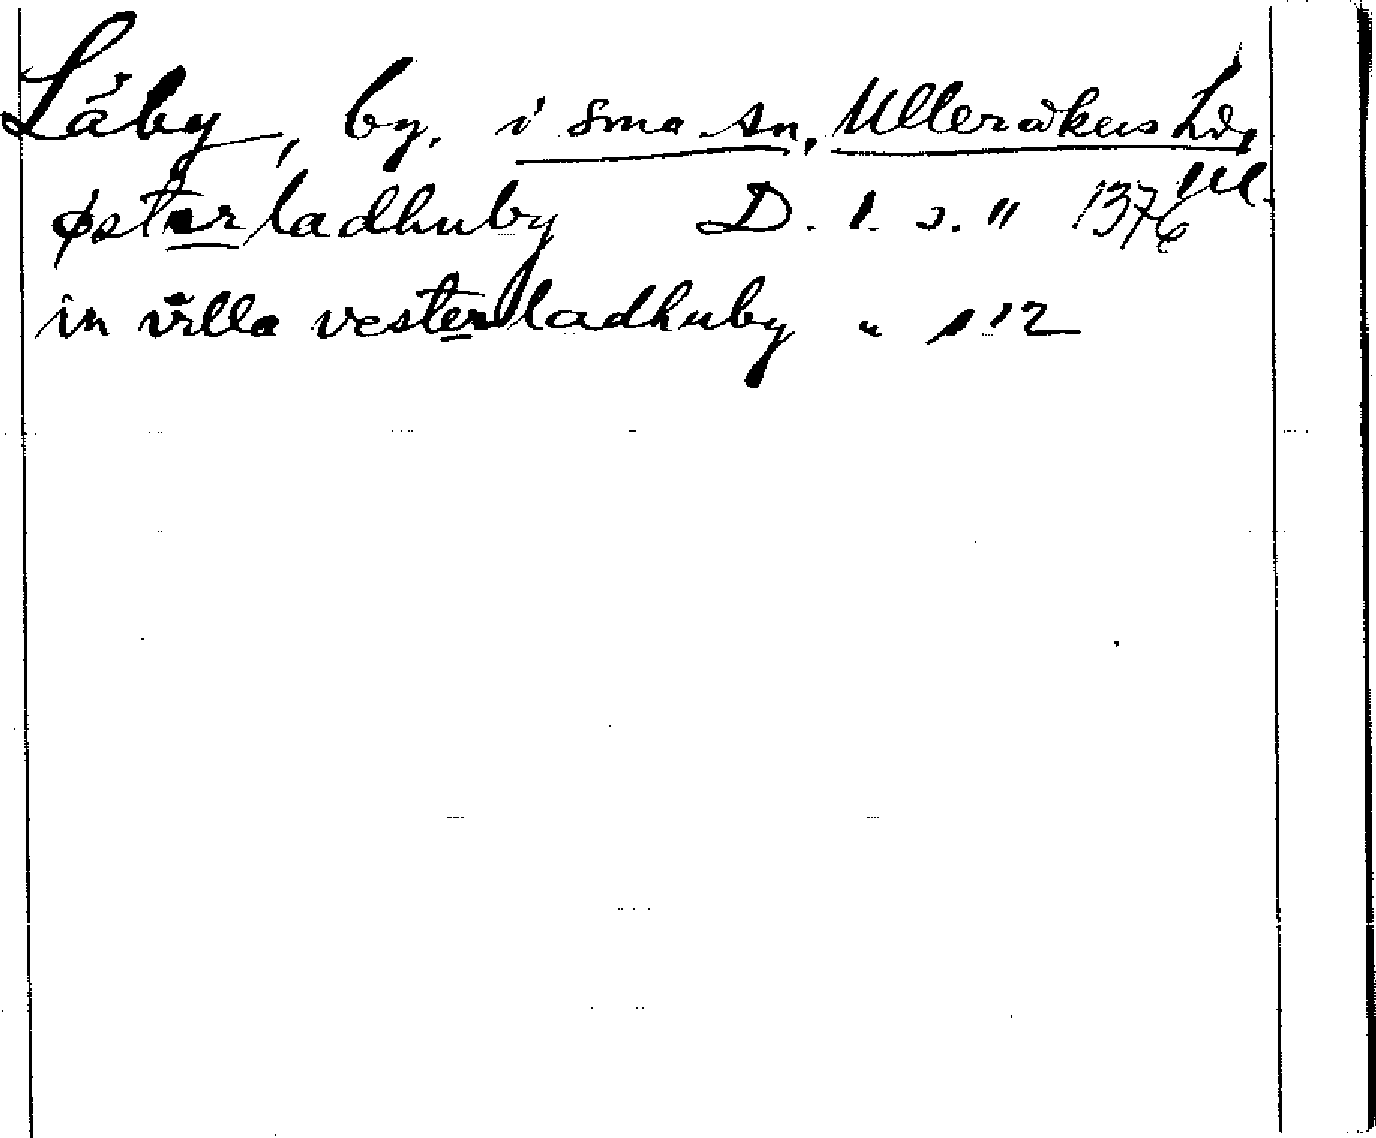 Låby, by, i sma sn, Ulleråkers hd,
Upl.
østerladhuby D. 1. s. 11 1376
in villa vesterladhuby " s 12